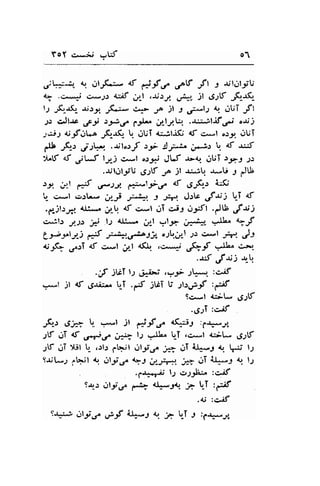 ۵۶
کتاب نخست ۳۵۲
ناتوان‌اند و اگر گاهی می‌گوئیم که ستمگران به پشتیبانی
یکدیگر کاری از پیش بردند، این گفته درست نیست. چه
اگر آنان به راستی و از هر حیث ستمگر بودند یکدیگر را
زنده نمی‌گذاشتند. بنابراین معلوم می‌شود نوعی عدالت در
آنان بوده است که نگذاشته آنان با یکدیگر همان‌گونه رفتار
کنند که با دشمن مشترک خود کرده‌اند. بعبارتی دیگر ظلم
در وجود آنان بحد کمال نبوده است زیرا کسانی که کاملا
ظالم و فاسد باشند از هر کاری ناتوان‌اند.
نکتهٔ دیگری که می‌خواستیم بررسی کنیم این بود
که آیا زندگی عادل بهتر و بیشتر قرین سعادت است یا
زندگی ظالم. اکنون وقت آن است که باین مسئله بپردازیم.
گرچه مطلب پیشین جواب این مسئله را نیز دربر داشت
ولی بهتر است در این‌باره پژوهشی‌بیشتر کنیم زیراموضوع
بحث مطلب کوچکی نیست، بلکه این است که آدمی چگونه
باید زندگی کند.
گفت: بسیار خوب، تحقیق را آغاز کن.
گفتم: گوش‌دار تا آغاز کنم. آیا معتقدی که از اسب
کاری ساخته است؟
گفت: آری.
پرسیدم: وقتیکه می‌گوئیم از اسب یا چیزی دیگر
کاری ساخته است، آیا مطلب را چنین می‌فهمی که آن کار
را تنها به وسیلهٔ آن چیز می‌توان انجام داد، یا اقلا آن کار
را به وسیلهٔ آن چیز ببهترین وجه می‌توان به انجام رساند؟
گفت: منظورت را نفهمیدم.
گفتم: آیا جز به‌وسیلهٔ چشم می‌توان دید؟
گفت: نه.
پرسیدم: و آیا جز به وسیلهٔ گوش می‌توان شنید؟